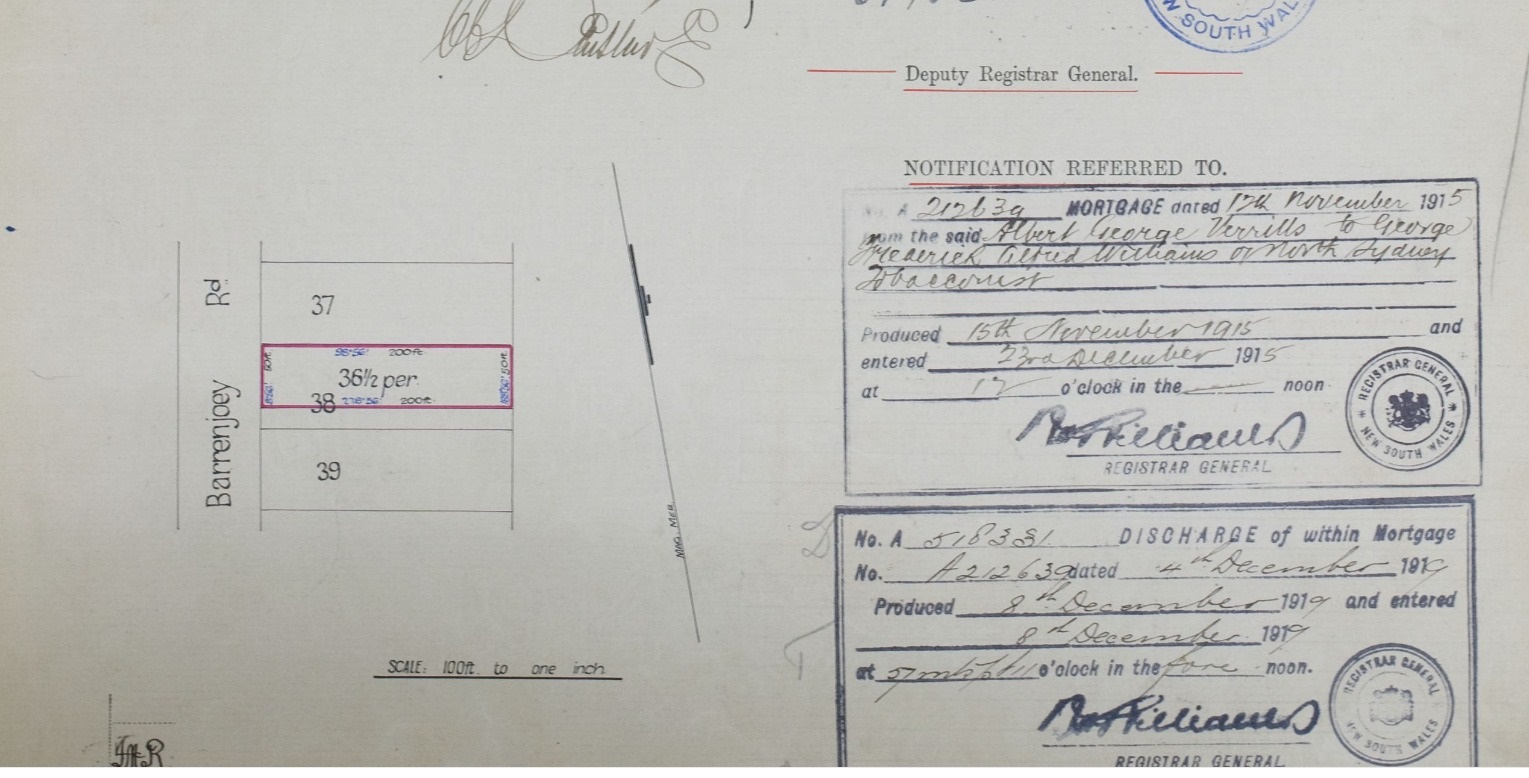 NEW SOUTH WALES
Deputy Registrar General.
NOTIFICATION REFERRED TO.
No. A 212639 MORTGAGE dated 12th November 1915
from the said Albert George Verrills to George
Frederick Alfred Williams of North Sydney
Tobacconist
Produced 15th November 1915 and
entered 23rd December 1915
at 12 o'clock in the noon
REGISTRAR GENERAL
REGISTRAR GENERAL
NEW SOUTH WALES
No. A 518331 DISCHARGE of within Mortgage
No. A212639 dated 4th December 1919
Produced 8th December 1919 and entered
8th December 1919
at o'clock in the fore noon.
REGISTRAR GENERAL
REGISTRAR GENERAL
NEW SOUTH WALES
Barrenjoey Rd.
37
98°56' 200ft.
50ft.
36½ per.
50ft.
38 200ft.
39
MAG. MER.
SCALE: 100ft. to one inch